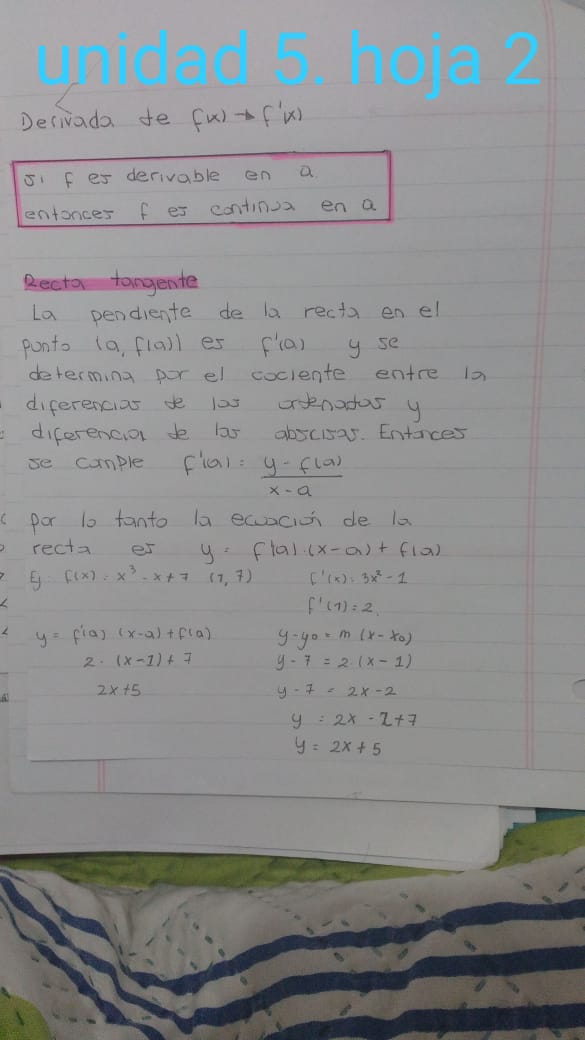 unidad 5. hoja 2
Derivada de f(x) → f'(x)
Si f es derivable en a.
entonces f es continua en a
Recta tangente
La pendiente de la recta en el
punto (a, f(a)) es f'(a) y se
determina por el cociente entre la
diferencias de las ordenadas y
diferencias de las abscisas. Entonces
se cumple f'(a) = y - f(a)
x - a
por lo tanto la ecuación de la
recta es y = f'(a) · (x-a) + f(a)
Ej: f(x) = x³ - x + 7 (1, 7) f'(x) = 3x² - 1
f'(1) = 2
y = f'(a) (x-a) + f(a) y-y0 = m (x-x0)
2 · (x-1) + 7 y - 7 = 2 (x - 1)
2x+5 y - 7 = 2x - 2
y = 2x - 2 + 7
y = 2x + 5